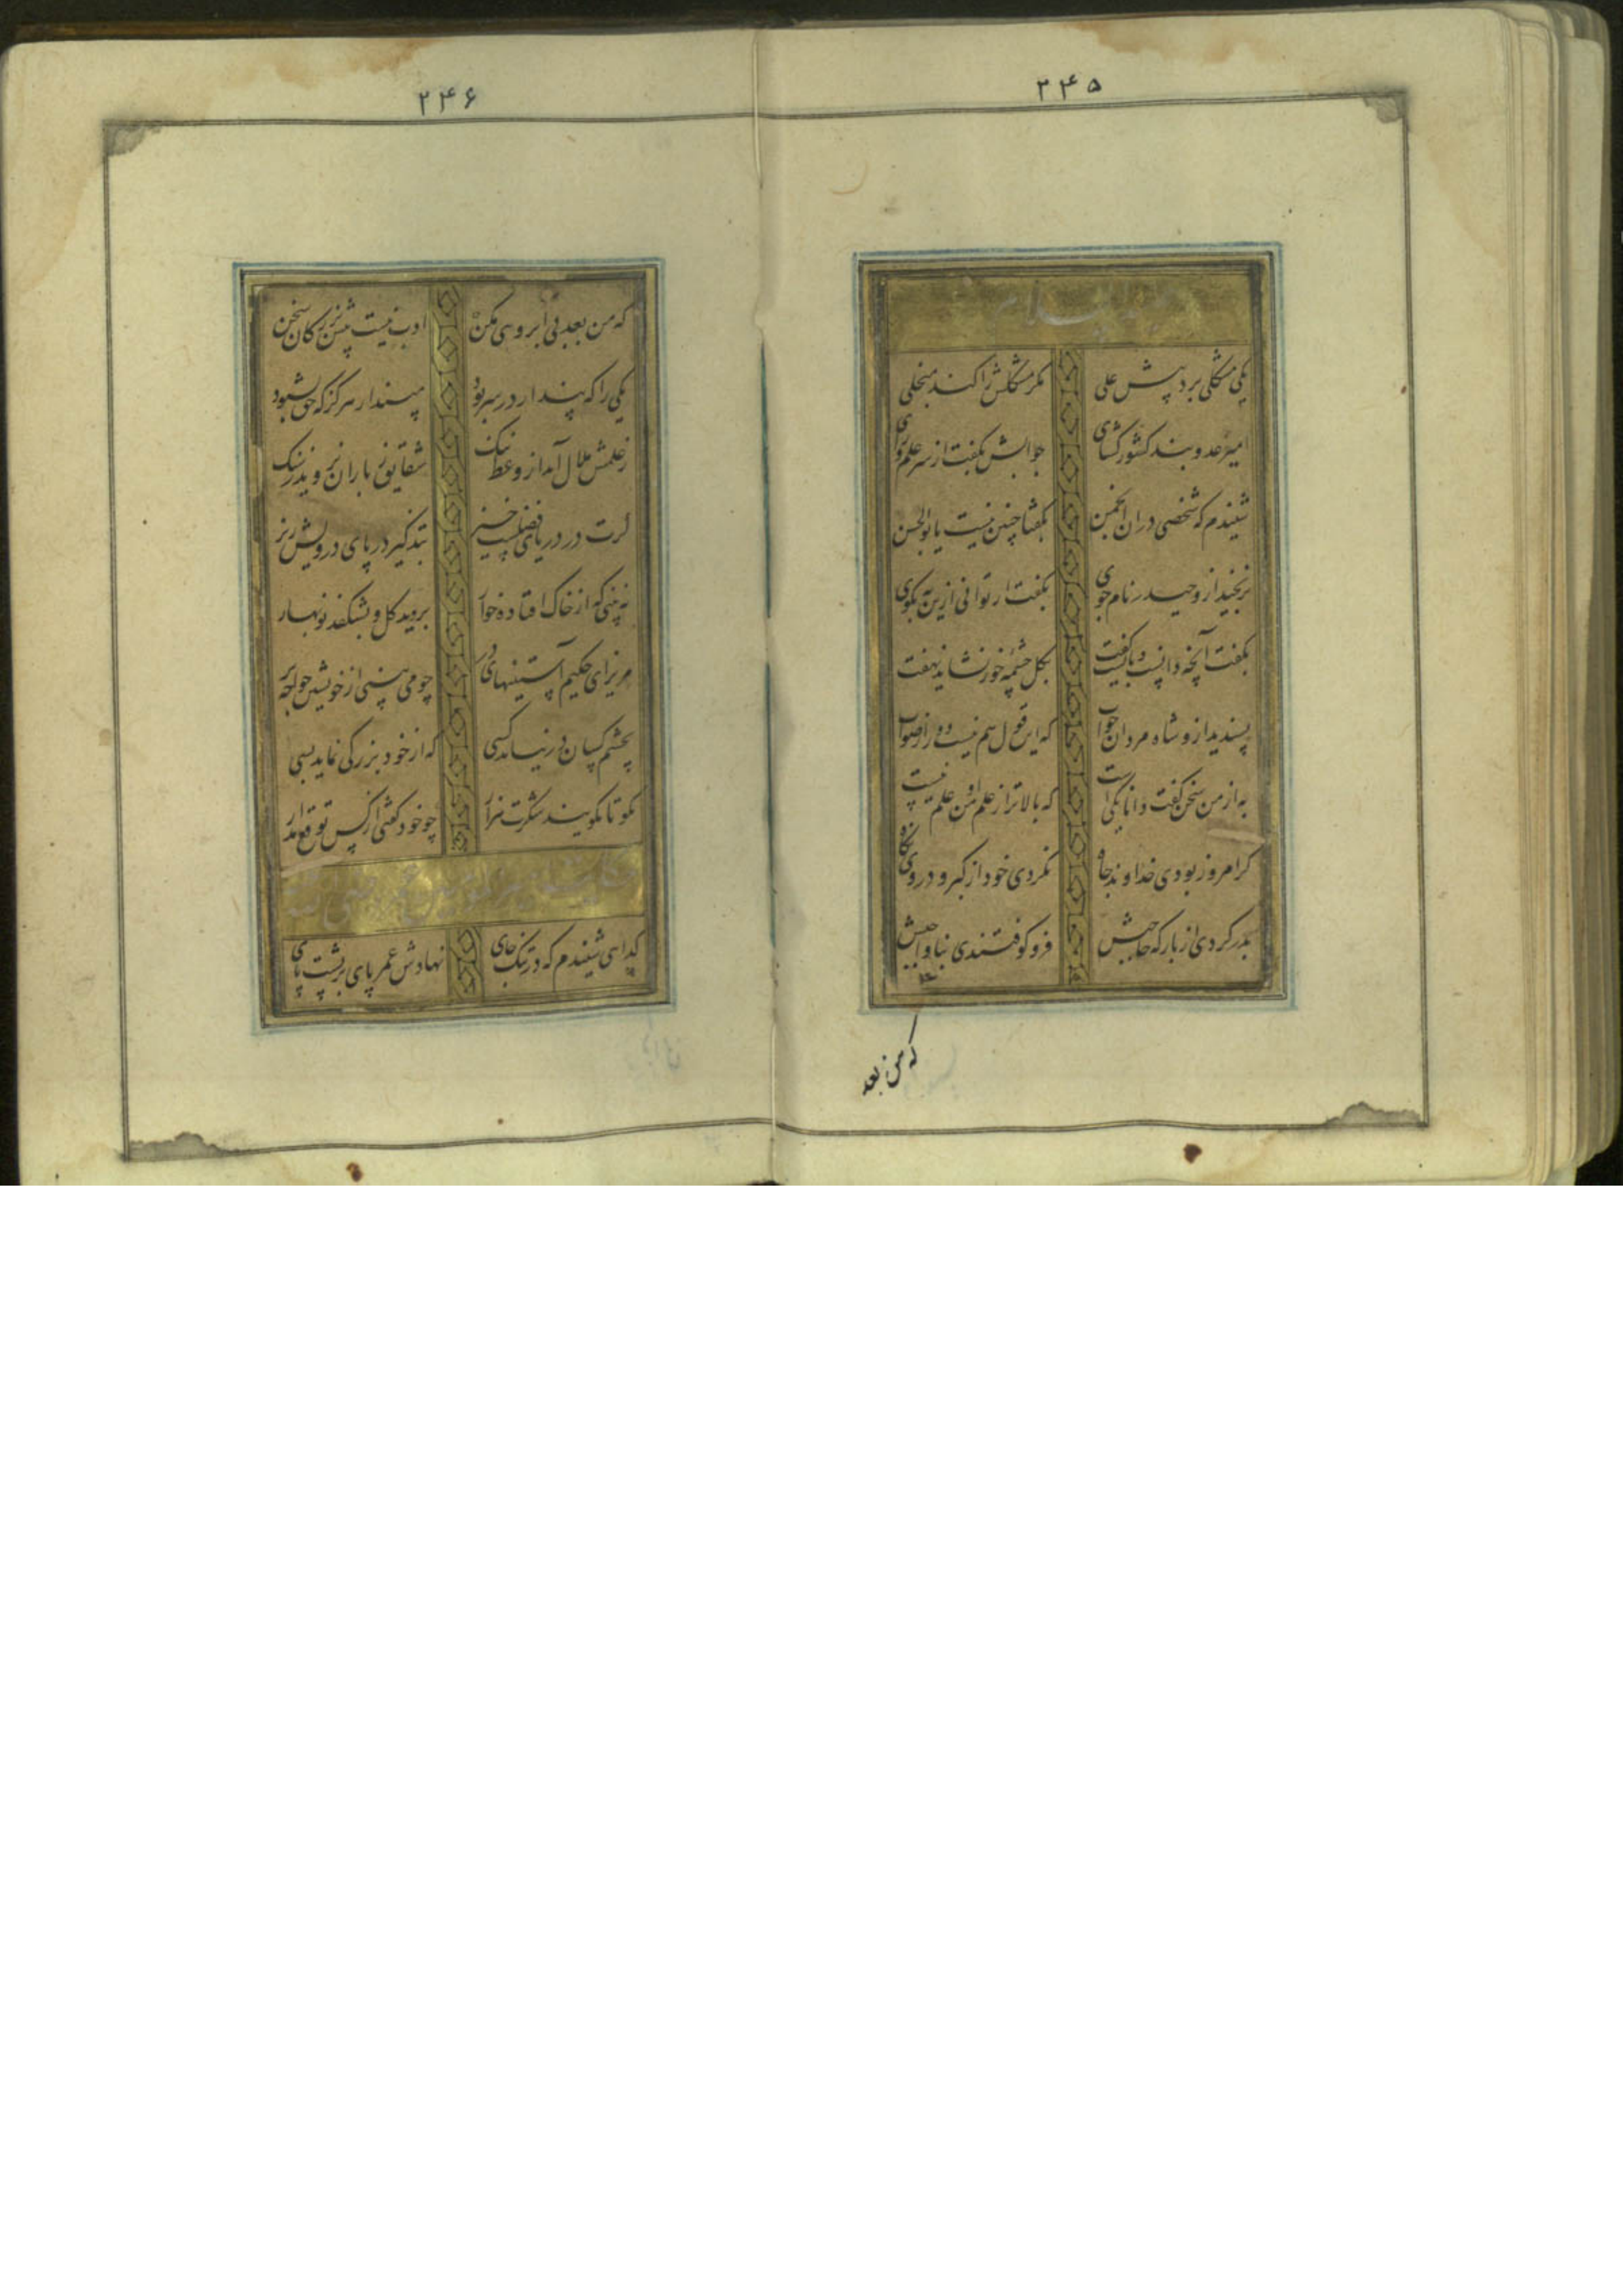 ۲۴۵
علیه السلام
یکی مشکلی برد پیش علی مگر مشکلش را کند منجلی
امیر عدو بند کشور کشای جوابش بگفت از سر علم و رای
شنیدم که شخصی دران انجمن بگفتا چنین نیست یا بوالحسن
نرنجید از و حیدر نام جوی بگفت ار توانی ازین به بگوی
بگفت آنچه دانست و بایست گفت بگل چشمه خور نشاید نهفت
پسندید ازو شاه مردان جواب که
به از من سخن گفت و دانا یکیست که بالاتر از علم او علم نیست
گر امروز بودی خداوند جاه نکردی خود از کبر در وی نگاه
بدر کردی از بارگه حاجبش فرو کوفتندی بناواجبش
که من بعد
۲۴۶
که من بعد بی آبرویی مکن ادب نیست پیش بزرگان سخن
یکی را که پندار در سر بود مپندار هرگز که حق بشنود
ز علمش ملال آید از وعظ ننگ شقایق بباران نروید ز سنگ
گرت در دریای فضلست خیز بتذکیر در پای درویش ریز
نه بینی که از خاک افتاده خوار بروید گل و بشکفد نوبهار
مریز ای حکیم آستینهای در چو می بینی از خویشتن خواجه پر
بچشم کسان در نیاید کسی که از خود بزرگی نماید بسی
مگو تا بگویند شکرت هزار چو خود گفتی از کس توقع مدار
حکایت امیر المؤمنین عمر رضی الله عنه
گدایی شنیدم که در تنگ جای نهادش عمر پای بر پشت پای